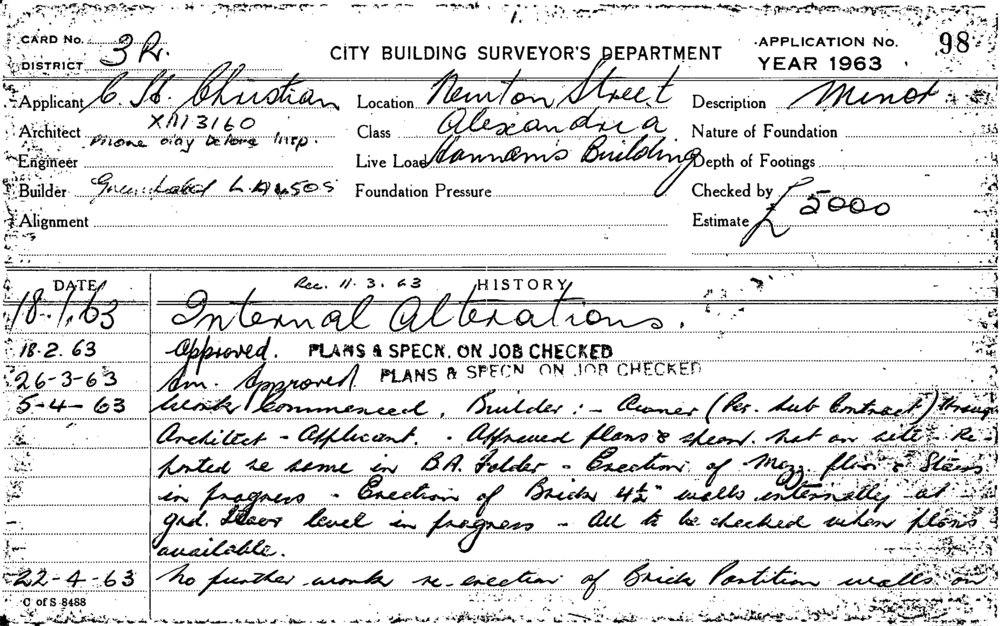 CARD No.
DISTRICT 3R.
CITY BUILDING SURVEYOR'S DEPARTMENT
APPLICATION No. 98
YEAR 1963
Applicant C. H. Christian Location Newton Street Description Minor
Architect XM3160 Class Alexandria Nature of Foundation
Phone day before Insp.
Engineer Live Load Hannam's Building Depth of Footings
Builder Foundation Pressure Checked by
Alignment Estimate £5000
DATE Rec. 11.3.63 HISTORY
18.1.63 Internal Alterations.
18.2.63 Approved. PLANS & SPECN. ON JOB CHECKED
26-3-63 Am. Approved PLANS & SPECN ON JOB CHECKED
5-4-63 Work Commenced. Builder:- Owner (Per. Sub Contract) through
Architect - Applicant. - Approved plans & specn. not on site - Re-
ported re same in B.A. Folder - Erection of Mezz. floor & Stairs
in progress - Erection of Brick 4½" walls internally at
grd. floor level in progress - All to be checked when plans
available.
22-4-63 No further work re-erection of Brick Partition walls on
C of S 8488